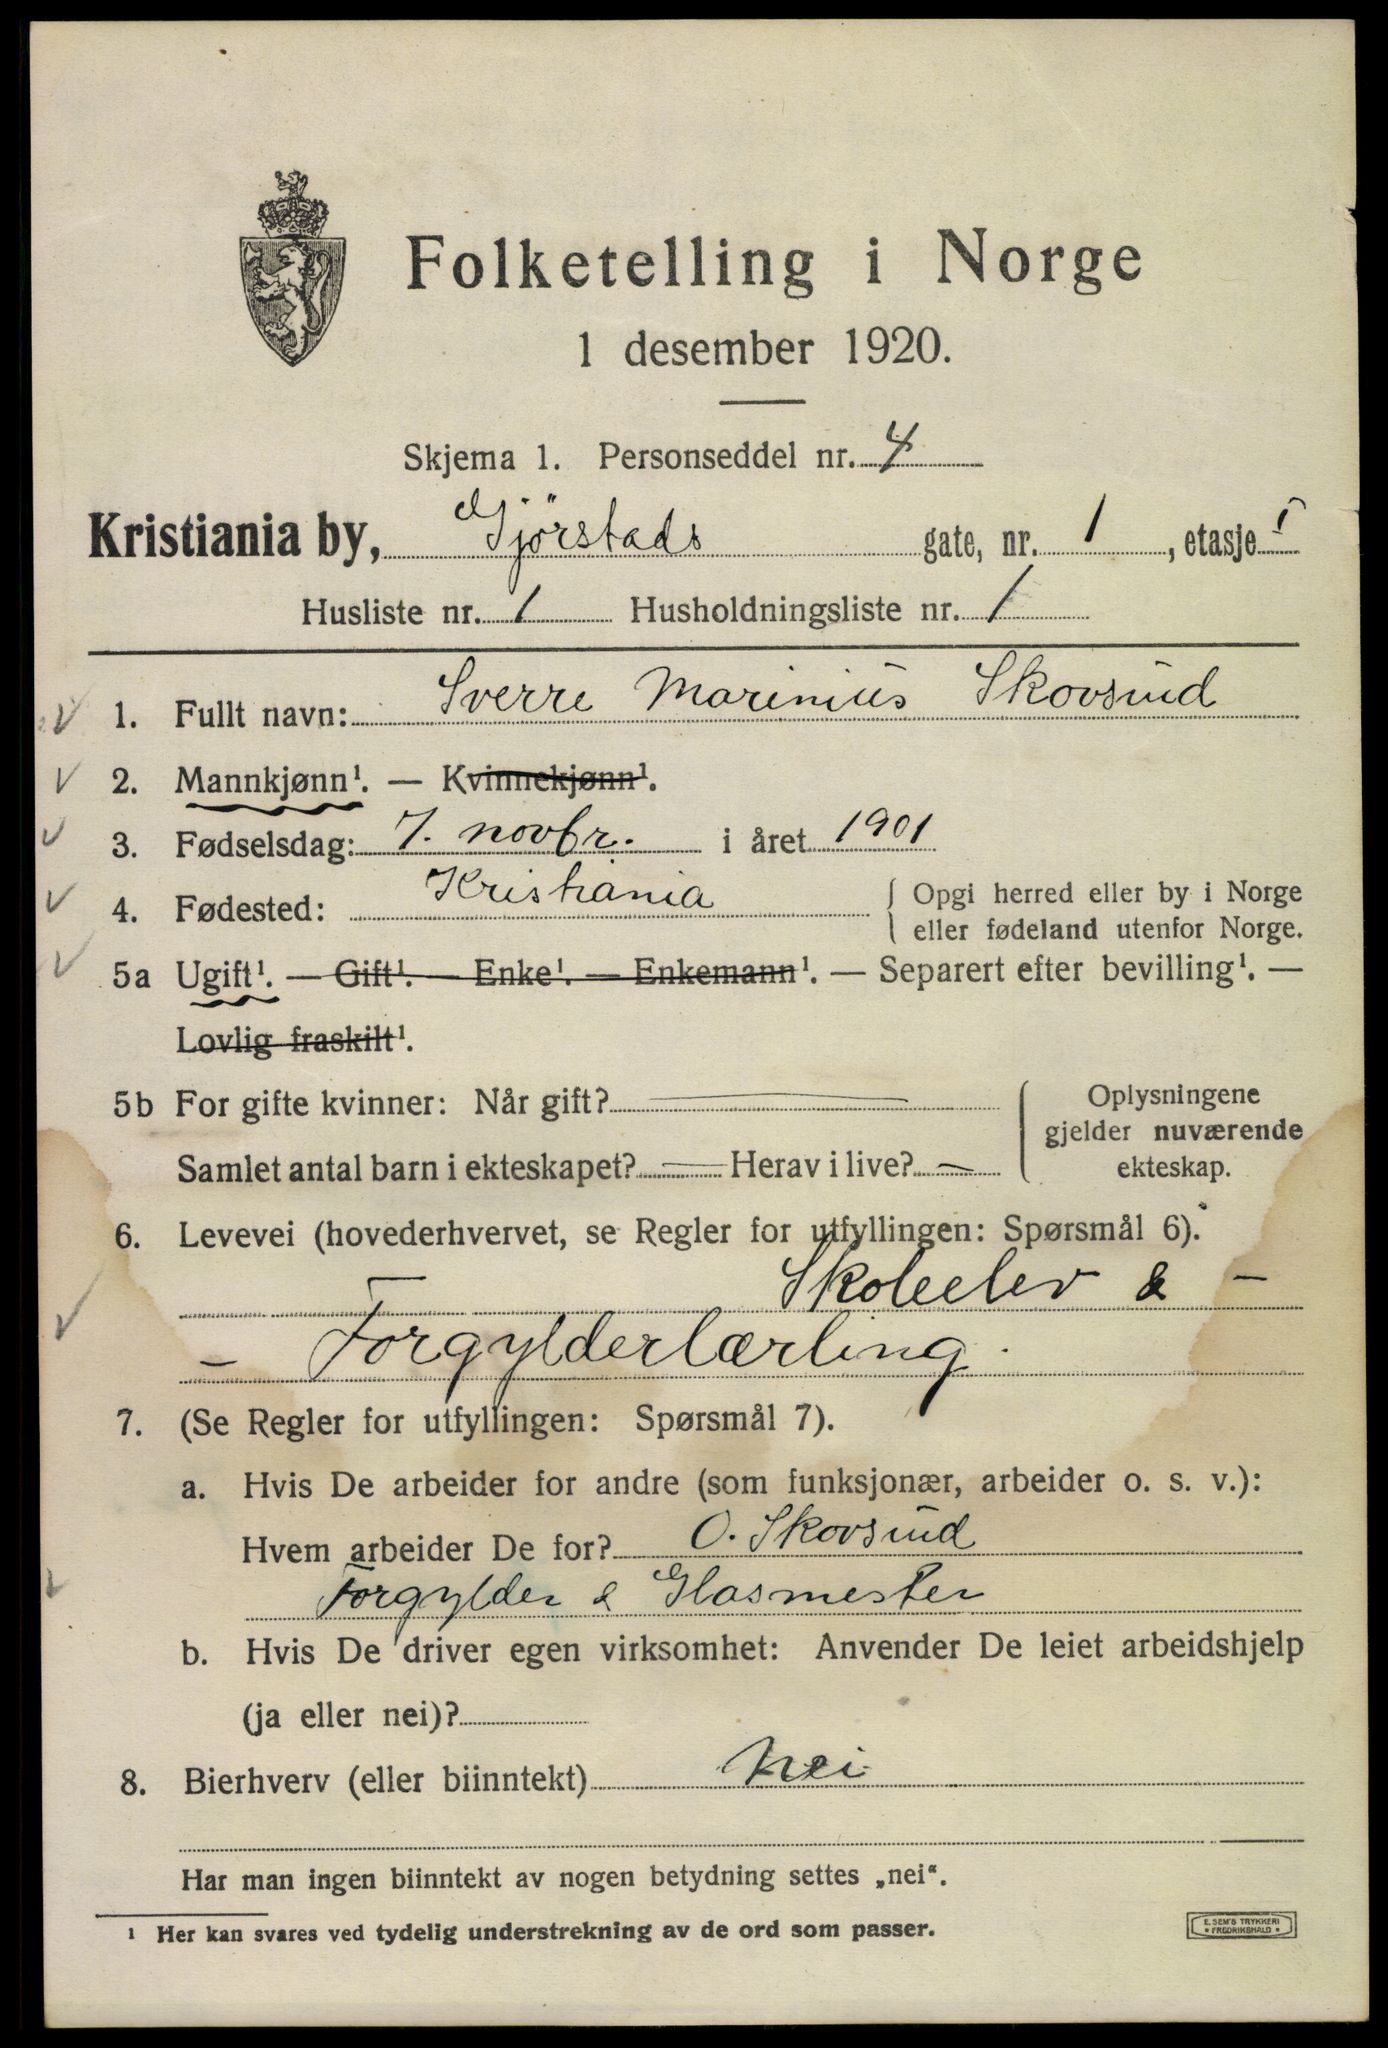 Folketelling i Norge
1 desember 1920.
Skjema 1. Personseddel nr. 4
Kristiania by, Gjörstads gate, nr. 1, etasje I
Husliste nr. 1 Husholdningsliste nr. 1
1. Fullt navn: Sverre Marinius Skovsund
2. Mannkjønn¹. — Kvinnekjønn¹.
3. Fødselsdag: 7. novbr. i året 1901
4. Fødested: Kristiania { Opgi herred eller by i Norge
eller fødeland utenfor Norge.
5a Ugift¹. — Gift¹. — Enke¹. — Enkemann¹. — Separert efter bevilling¹. —
Lovlig fraskilt¹.
5b For gifte kvinner: Når gift? — { Oplysningene
gjelder nuværende
Samlet antal barn i ekteskapet? — Herav i live? —
ekteskap.
6. Levevei (hovederhvervet, se Regler for utfyllingen: Spørsmål 6).
Skoleelev & -
- Forgylderlærling.
7. (Se Regler for utfyllingen: Spørsmål 7).
a. Hvis De arbeider for andre (som funksjonær, arbeider o. s. v.):
Hvem arbeider De for? O. Skovsund
Forgylder & Glasmester
b. Hvis De driver egen virksomhet: Anvender De leiet arbeidshjelp
(ja eller nei)?
8. Bierhverv (eller biinntekt) Nei
Har man ingen biinntekt av nogen betydning settes „nei“.
¹ Her kan svares ved tydelig understrekning av de ord som passer.
E. SEM'S TRYKKERI
* FREDRIKSHALD *